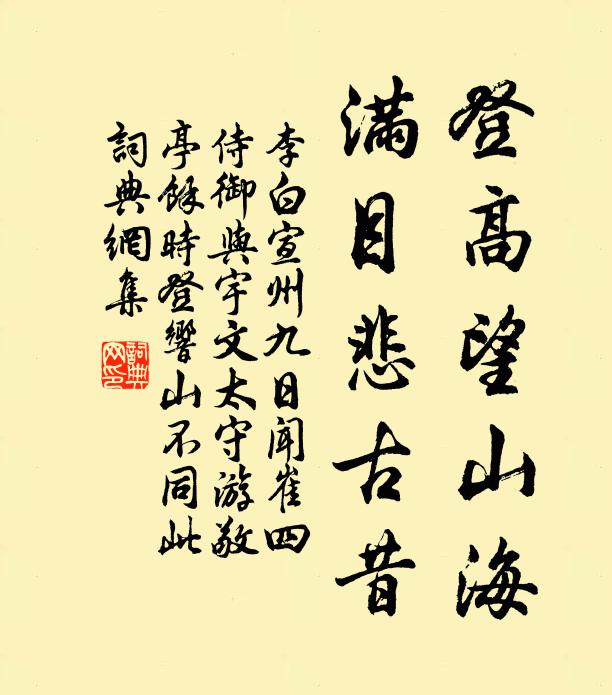 登高望山海
滿目悲古昔
李白宣州九日聞崔四
侍御與宇文太守游敬
亭餘時登響山不同此
詞典網集
詞典
網印